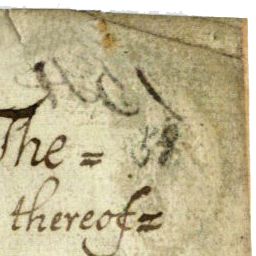 The = 58
thereof=